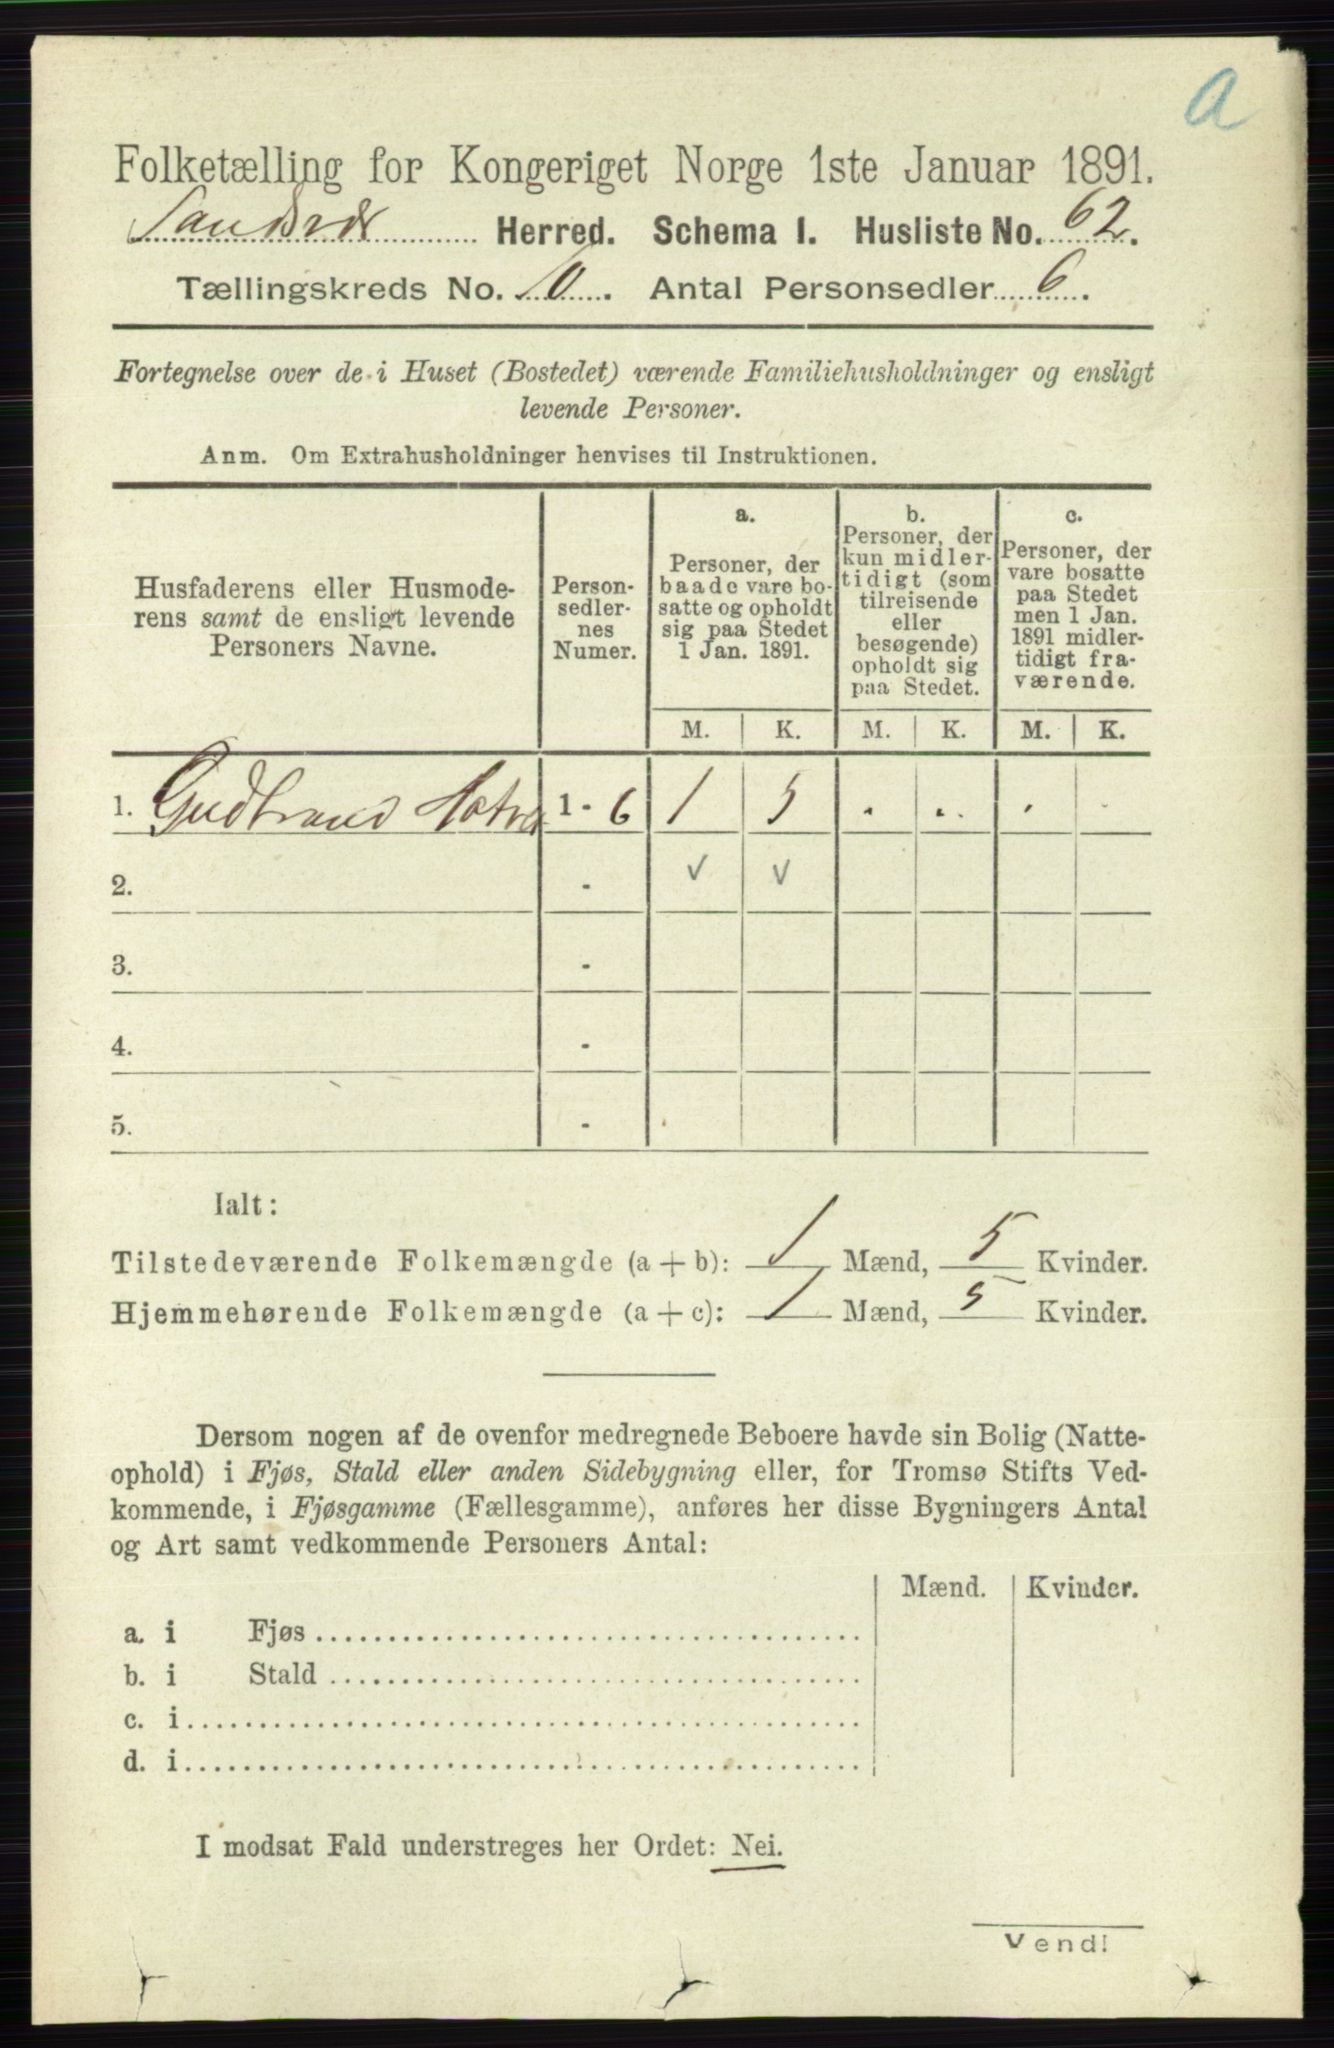 a
Folketælling for Kongeriget Norge 1ste Januar 1891.
Herred. Schema I. Husliste No. 62.
Tællingskreds No. 10. Antal Personsedler 6.
Fortegnelse over de i Huset (Bostedet) værende Familiehusholdninger og ensligt
levende Personer.
Anm. Om Extrahusholdninger henvises til Instruktionen.
Husfaderens eller Husmode-
rens samt de ensligt levende
Personers Navne.
Person-
sedler-
nes
Numer.
a.
Personer, der
baade vare bo-
satte og opholdt
sig paa Stedet
1 Jan. 1891.
b.
Personer, der
kun midler-
tidigt (som
tilreisende
eller
besøgende)
opholdt sig
paa Stedet.
c.
Personer, der
vare bosatte
paa Stedet
men 1 Jan.
1891 midler-
tidigt fra-
værende.
M. K. M. K. M. K.
1. Gudbrand 1 - 6 1 5 . . . .
2. - v v
3. -
4. -
5. -
Ialt:
Tilstedeværende Folkemængde (a + b): 1 Mænd, 5 Kvinder.
Hjemmehørende Folkemængde (a + c): 1 Mænd, 5 Kvinder.
Dersom nogen af de ovenfor medregnede Beboere havde sin Bolig (Natte-
ophold) i Fjøs, Stald eller anden Sidebygning eller, for Tromsø Stifts Ved-
kommende, i Fjøsgamme (Fællesgamme), anføres her disse Bygningers Antal
og Art samt vedkommende Personers Antal:
Mænd. Kvinder.
a. i Fjøs
b. i Stald
c. i
d. i
I modsat Fald understreges her Ordet: Nei.
Vend!